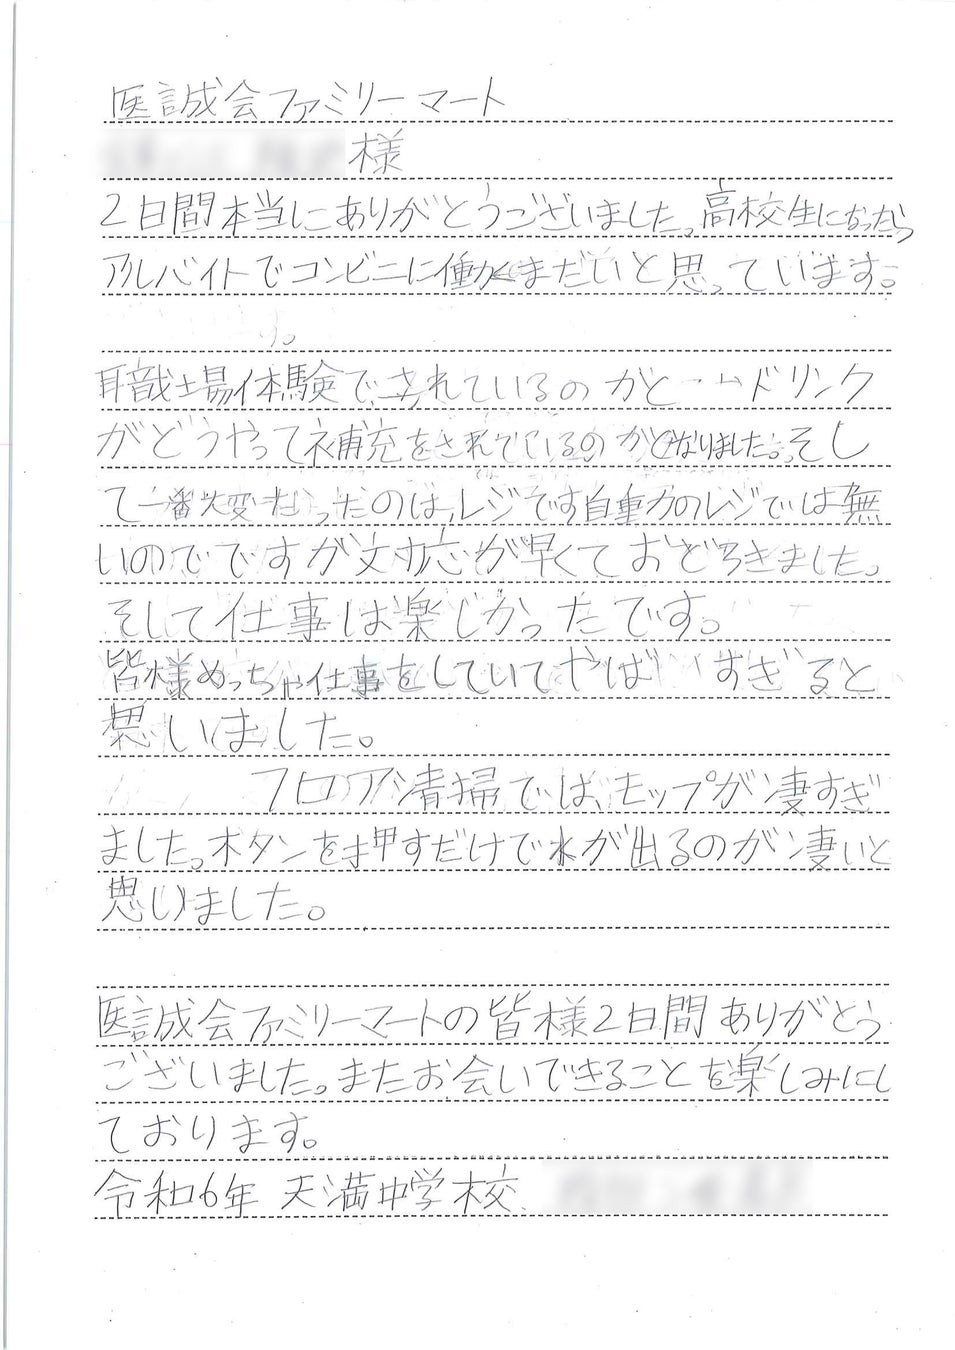 医誠会ファミリーマート
様
2日間本当にありがとうございました。高校生になったら
アルバイトでコンビニに働くまだいいと思っています。
す。
職場体験で、されているのかと ドリンク
がどうやって補充をされているのかとなりました。そし
て一番大変だったのは、レジです自動のレジでは無
いのでですが対応が早くておどろきました。
そして仕事は楽しかったです。
皆様めっちゃ仕事をしていてやば すぎると
思いました。
フロア清掃では、モップが凄すぎ
ました。ボタンを押すだけで水が出るのが凄いと
思いました。
医誠会ファミリーマートの皆様2日間ありがとう
ございました。またお会いできることを楽しみにし
ております。
令和6年 天満中学校